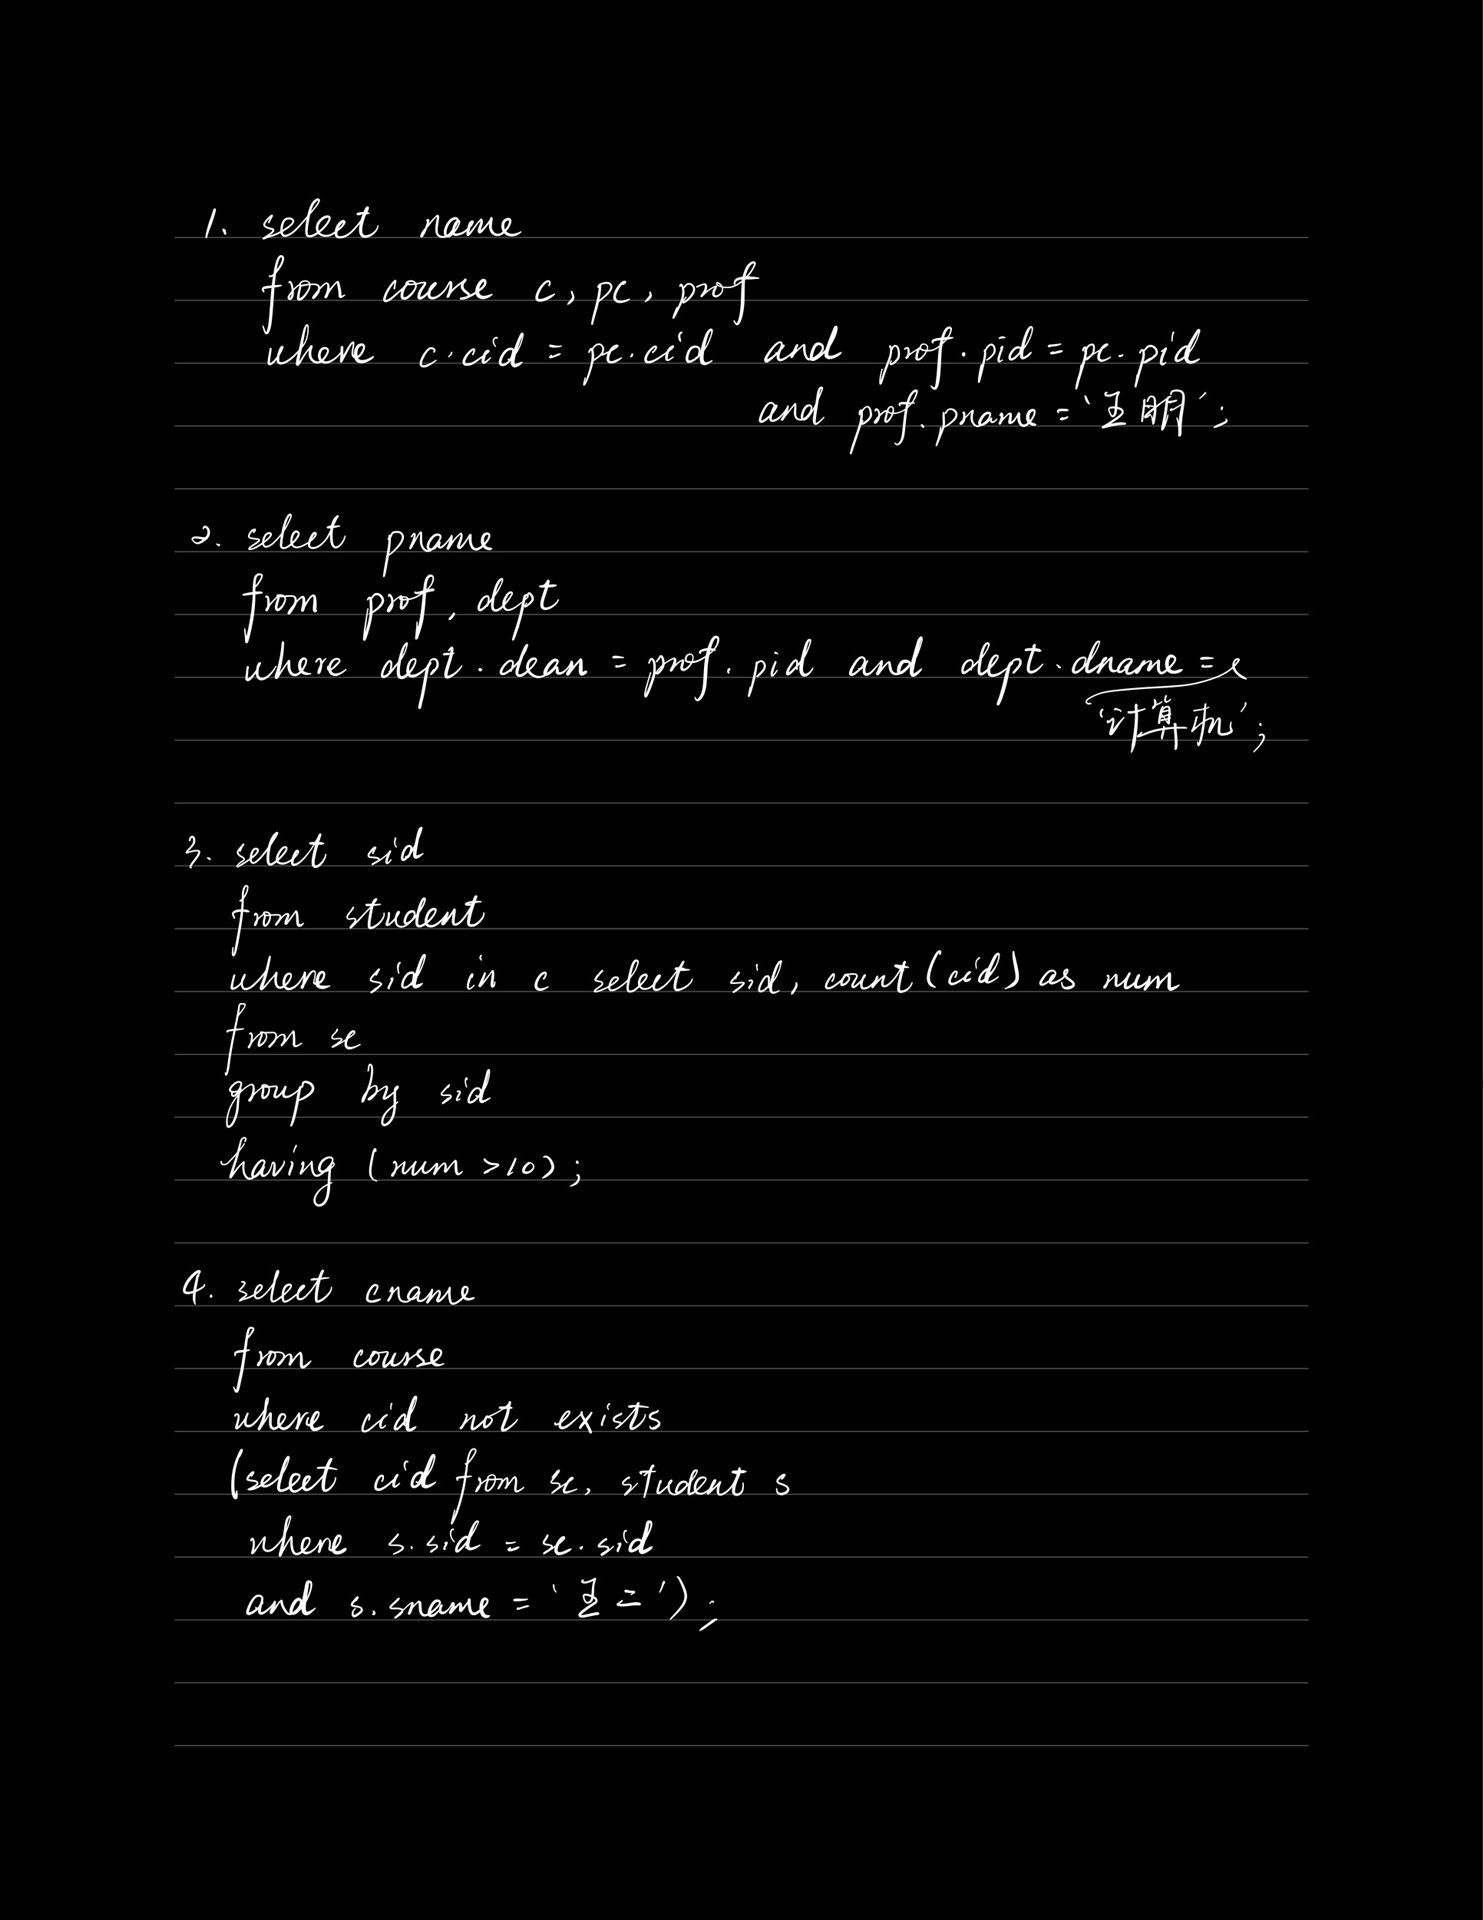 1. select name
from course c, pc, prof
where c.cid = pc.cid and prof.pid = pc.pid
and prof.pname = '王明';
2. select pname
from prof, dept
where dept.dean = prof.pid and dept.dname =
'计算机';
3. select sid
from student
where sid in c select sid, count(cid) as num
from sc
group by sid
having (num >10);
4. select cname
from course
where cid not exists
(select cid from sc, student s
where s.sid = sc.sid
and s.sname = '王二');